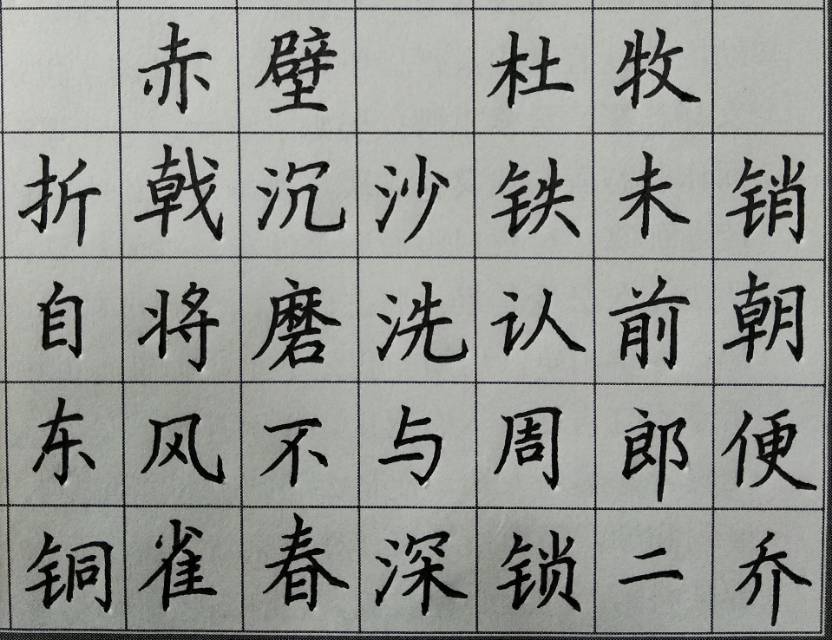 赤壁 杜牧
折戟沉沙铁未销
自将磨洗认前朝
东风不与周郎便
铜雀春深锁二乔